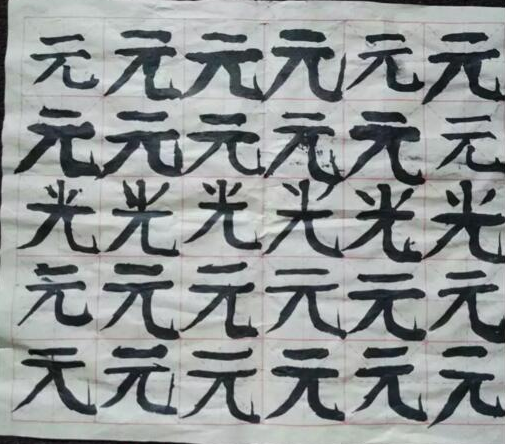 元元元元元元
元元元元元元
光光光光光光
元元元元元元
元元元元元元